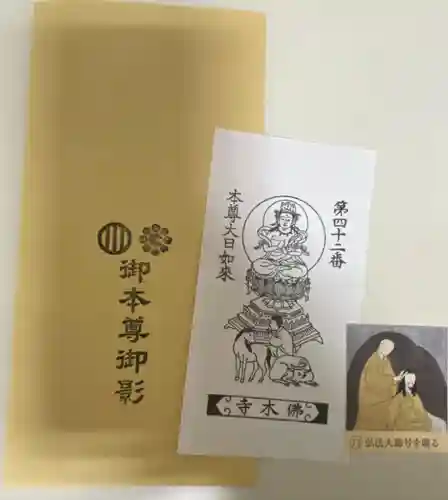 御本尊御影
第四十二番
本尊大日如来
寺木佛
弘法大師号を賜る